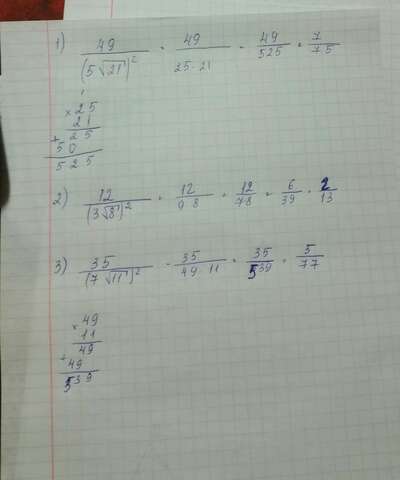 1) 49/(5√21)² = 49/25·21 = 49/525 = 7/75
× 25
21
+ 25
50
525
2) 12/(3√8)² = 12/9·8 = 12/78 = 6/39 = 2/13
3) 35/(7√11)² = 35/49·11 = 35/539 = 5/77
× 49
11
+ 49
49
539